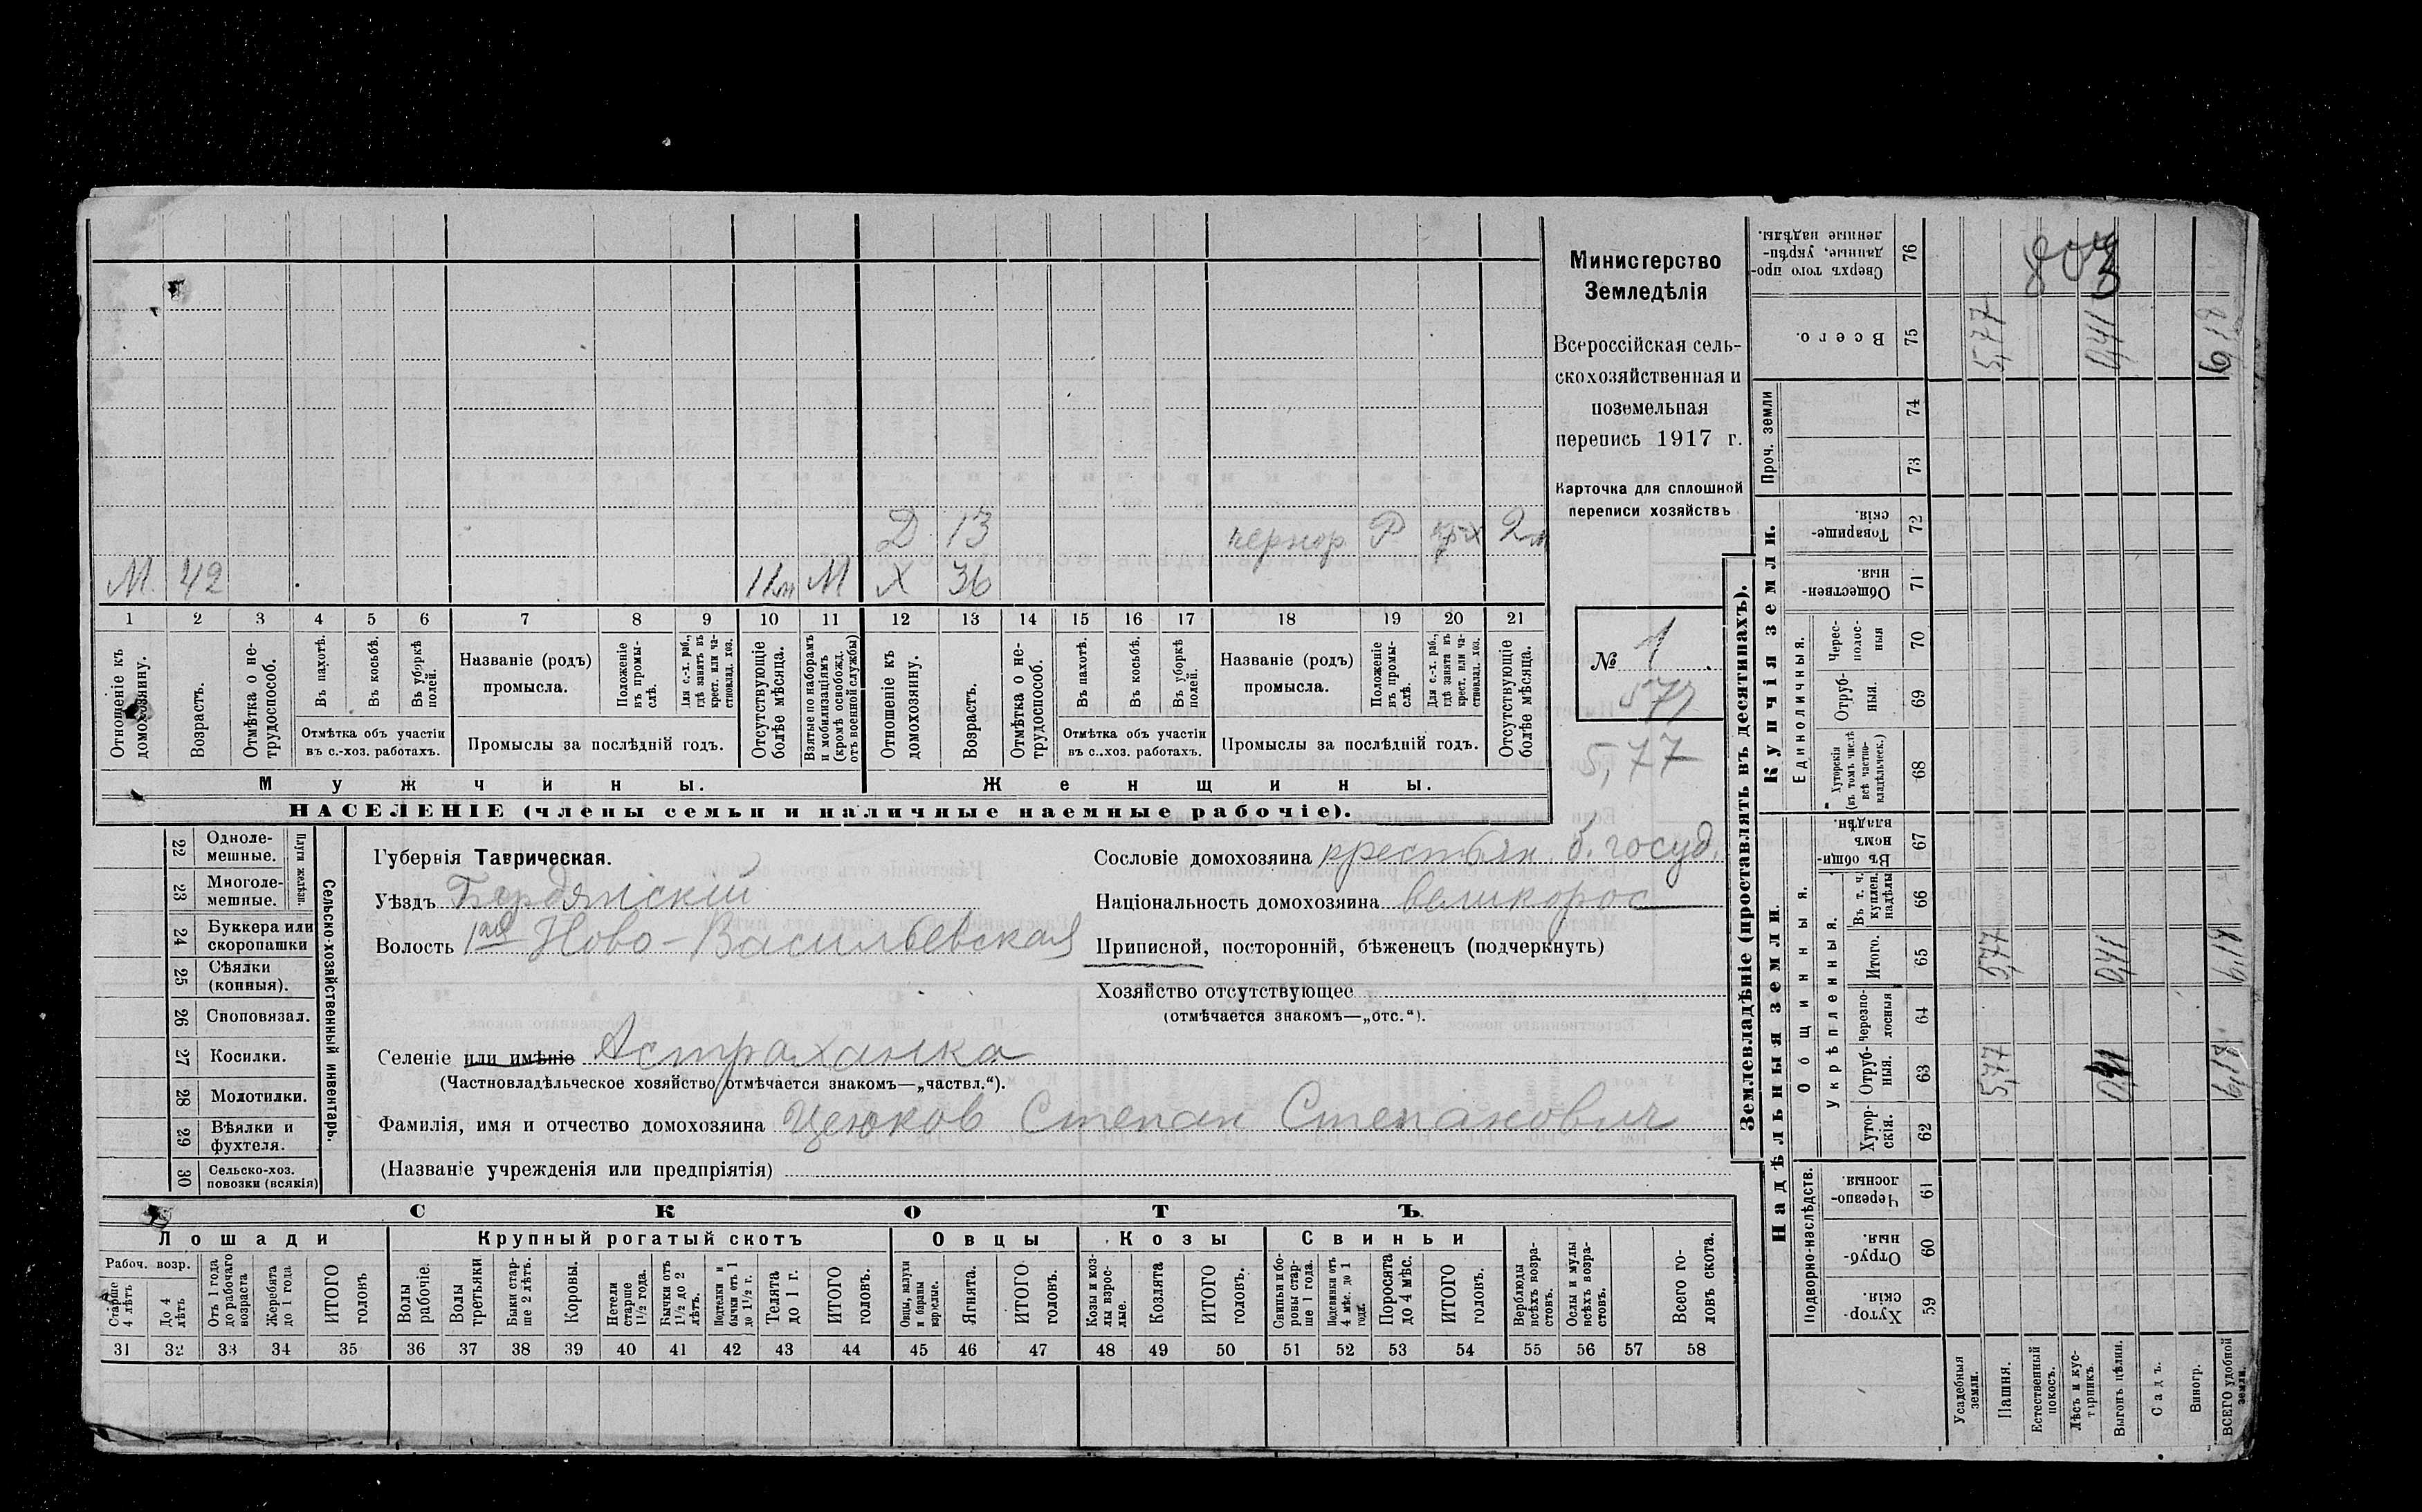 Министерство
Земледѣлія
Всероссійская сель-
скохозяйственная и
поземельная
перепись 1917 г.
Карточка для сплошной
переписи хозяйствъ
№ 1
577
5,77
Д 13 Р 2м
М 42 11м М Х 36
1 2 3 4 5 6 7 8 9 10 11 12 13 14 15 16 17 18 19 20 21
Отношеніе къ домохозяину.
Возрастъ.
Отмѣтка о не-трудоспособ.
Въ пахотѣ.
Въ косьбѣ.
Въ уборкѣ полей.
Отмѣтка объ участіи въ с.-хоз. работахъ.
Названіе (родъ) промысла.
Положеніе въ промы-слѣ.
Для с.-х. раб., гдѣ занятъ въ крест. или ча-стновлад. хоз.
Промыслы за послѣдній годъ.
Отсутствующіе болѣе мѣсяца.
Взятые по наборамъ и мобилизаціямъ (кромѣ освобожд. отъ военной службы)
Отношеніе къ домохозяину.
Возрастъ.
Отмѣтка о не-трудоспособ.
Въ пахотѣ.
Въ косьбѣ.
Въ уборкѣ полей.
Отмѣтка объ участіи въ с.-хоз. работахъ.
Названіе (родъ) промысла.
Положеніе въ промы-слѣ.
Для с.-х. раб., гдѣ занята въ крест. или ча-стновлад. хоз.
Промыслы за послѣдній годъ.
Отсутствующіе болѣе мѣсяца.
Мужчины. Женщины.
НАСЕЛЕНІЕ (члены семьи и наличные наемные рабочіе).
Сельско-хозяйственный инвентарь.
Плуги желѣзн.
22 Одноле-мешные.
23 Многоле-мешные.
24 Буккера или скоропашки
25 Сѣялки (конныя).
26 Сноповязал.
27 Косилки.
28 Молотилки.
29 Вѣялки и фухтеля.
30 Сельско-хоз. повозки (всякія)
Губернія Таврическая.
Уѣздъ Бердянскій
Волость 1ая Ново-Васильевская
Селеніе или имѣніе Астраханка
(Частновладѣльческое хозяйство отмѣчается знакомъ—„частвл.“).
Фамилія, имя и отчество домохозяина Степан Степанович
(Названіе учрежденія или предпріятія)
Сословіе домохозяина крестьян. б. госуд.
Національность домохозяина великорос
Приписной, посторонній, бѣженец (подчеркнуть)
Хозяйство отсутствующее
(отмѣчается знакомъ—„отс.“).
СКОТЪ.
Лошади Крупный рогатый скотъ Овцы Козы Свиньи
Рабоч. возр.
Старше 4 лѣтъ
До 4 лѣтъ
Отъ 1 года до рабочаго возраста
Жеребята до 1 года
ИТОГО головъ
Волы рабочіе.
Волы третьяки
Быки стар-ше 2 лѣтъ.
Коровы.
Нетели старше 1½ года.
Бычки отъ 1½ до 2 лѣтъ.
Подтелки и бычки отъ 1 до 1½ г.
Телята до 1 г.
ИТОГО головъ.
Овцы, валухи и бараны взрослые.
Ягнята.
ИТОГО головъ.
Козы и коз-лы взрос-лые.
Козлята
ИТОГО головъ.
Свиньи и бо-ровы стар-ше 1 года.
Подсвинки отъ 4 мѣс. до 1 года.
Поросята до 4 мѣс.
ИТОГО головъ.
Верблюды всѣхъ возра-стовъ.
Ослы и мулы всѣхъ возра-стовъ.
Всего го-ловъ скота.
31 32 33 34 35 36 37 38 39 40 41 42 43 44 45 46 47 48 49 50 51 52 53 54 55 56 57 58
Землевладѣніе (проставлять въ десятинахъ).
Надѣльныя земли.
Подворно-наслѣдств.
Хутор-скія. 59
Отруб-ныя. 60
Черезпо-лосныя. 61
Общинныя.
Укрѣпленныя.
Хутор-скія. 62
Отруб-ныя. 63 5,77 0,41 6,18
Черезпо-лосныя 64
Итого. 65 5,77 0,41 6,18
Въ т. ч. куплен. надѣлы 66
Въ общи-номъ владѣн. 67
Купчія земли.
Единоличныя.
Хуторскія (въ томъ числѣ всѣ частно-владѣльческ.) 68
Отруб-ныя. 69
Черес-полос-ныя 70
Обществен-ныя. 71
Товарище-скія. 72
Проч. земли 73 74
Всего. 75 5,77 0,41 6,18
Сверхъ того про-данные, укрѣп-ленные надѣлы. 76
803
Усадебныя земли.
Пашня.
Естественный покосъ.
Лѣсъ и кус-тарникъ.
Выгонъ цѣлин.
Садъ.
Виногр.
ВСЕГО удобной земли.